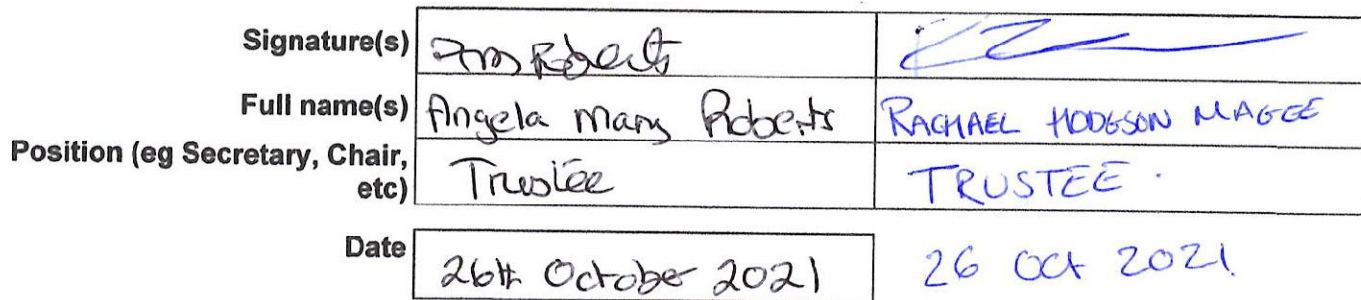 Signature(s) AM Roberts
Full name(s) Angela Mary Roberts RACHAEL HODGSON MAGEE
Position (eg Secretary, Chair,
etc) Trustee TRUSTEE.
Date 26th October 2021 26 Oct 2021